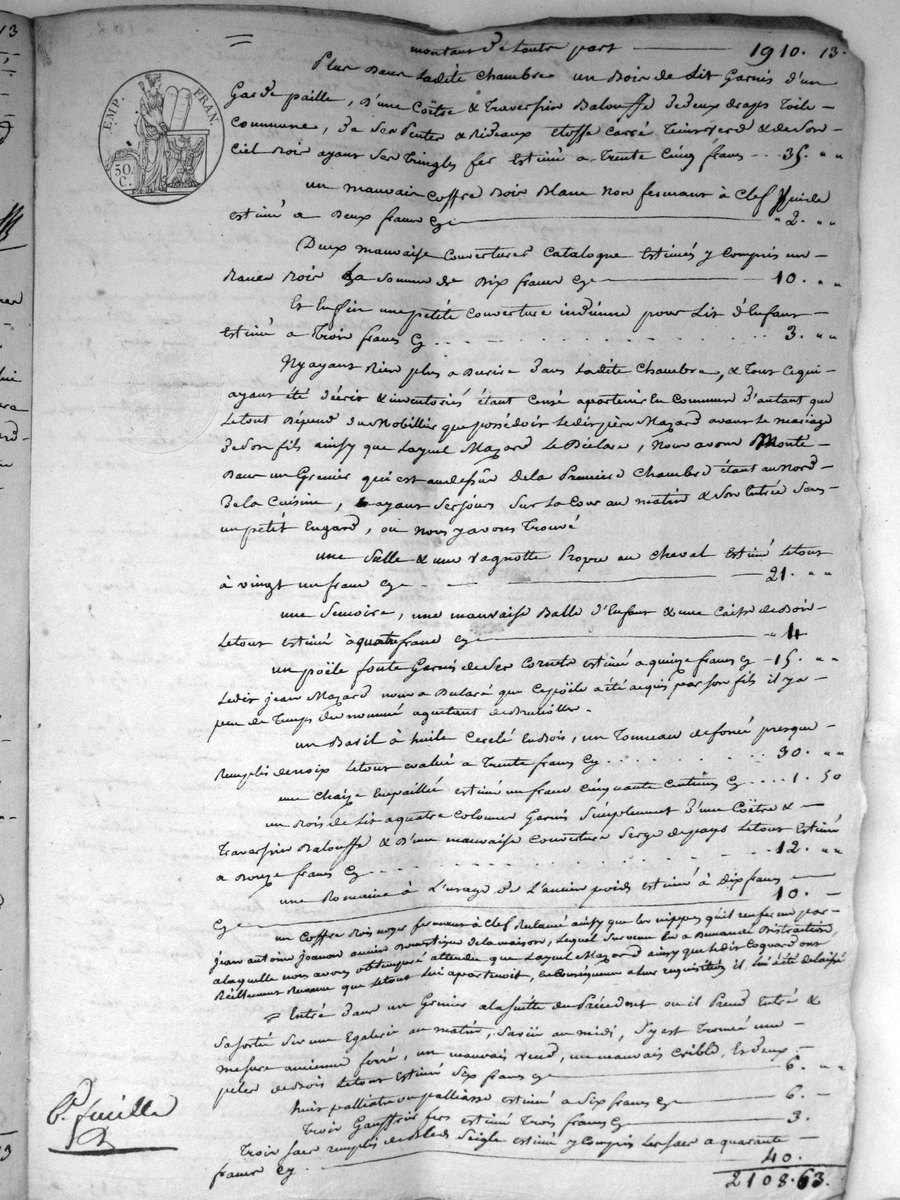 montant de lautre part 1910. 13.
EMP. FRAN.
50. C.
Plus dans Ladite Chambre un Bois de Lit Garnis d'un
Garde paille, d'une Coëtre & Traversier Balouffe de deux draps toile
Commune, de Ses & Rideaux étoffe carré teint verd & de Son
Ciel Bois ayant Ses Tringles fer Estimé a Trente Cinq francs .. 35. " "
un mauvais Coffre Bois Blanc non fermant à Clef
estimé a Deux francs Cy 2. " "
Deux mauvaise Couvertures Catalogne Estimés y Compris un
Bois La Somme de Dix francs Cy 10. " "
Et Enfin une petite Couverture indienne pour Lit d'Enfant
Estimé a Trois francs Cy 3. " "
Ny ayant Rien plus a dans Ladite Chambre, & tout Cequi
ayant été décrit & inventoriés étant Censé apartenir En Commun d'autant que
Letout Dépend du Mobillier que possédoit Ledit père Mazard avant Le mariage
de Son fils ainsy que Layuel Mazard Le Déclare, Nous avons Monté
Dans un Grenier qui est audessus dela Premiere Chambre étant au Nord
De La Cuisine, ayant Ses jours Sur La Cour au matin & Son Entrée Sous
un petit Engard, où Nous y avons Trouvé
une Selle & une vagnotte Propre au Cheval Estimé Letout
à vingt un franc Cy 21. " "
une Semoire, une mauvaise Balle d'Enfant & une Caisse de Bois
Letout estimé à quatre franc Cy " 4
un poële fonte Garnis de Ses Cornets estimé a quinze francs Cy 15. " "
Ledit jean Mazard nous a Déclaré que Ce poële a été acquis par Son fils il y a
peu de Temps du nommé
un Baril à huile Cerclé En Bois, un Tonneau defoncé presque
Remplis de noix Letout évalué a Trente francs Cy 30. " "
une Chaize Empaillé estimé un franc Cinquante Centimes Cy .... 1. 50
un Bois de Lit aquatre Colonnes Garnis Simplement d'une Coëtre &
Traversier Balouffe & d'une mauvaise Couverture Serge de pays Letout Estimé
a Douze francs Cy 12. " "
une Romaine à L'usage de L'ancien poids estimé à Dix francs
Cy 10.
un Coffre Bois noyer fermant à Clef Réclamé ainsy que Les nippes quil renferme par
jean antoine Joannon ancien Domestique de la maison, Lequel Surveau En a Demandé Distraction,
alaquelle nous avons obtempéré attendu que Layuel Mazard ainsy que Ledit Coquard ont
Réellement Reconnu que Letout Lui apartenoit, En Conséquence a Leur requisition il Lui a été delaissé
= Entré dans un Grenier alasuite du Précédent ou il Prend Entré &
Sa Sortie Sur une Egalerie au matin, au midi, S'y est Trouvé une
mesure ancienne ferré, un mauvais, un mauvais Crible, Et deux
peles de Bois Letout estimé Six francs Cy 6. " "
huit palliats ou palliasse estimé a Six francs Cy 6.
Trois Gauffrier fers estimé Trois francs Cy 3.
Trois Sacs remplis de Bleds Seigle estimé y Compris Les Sacs a quarante
francs Cy 40.
2108. 63.
6e. feuille